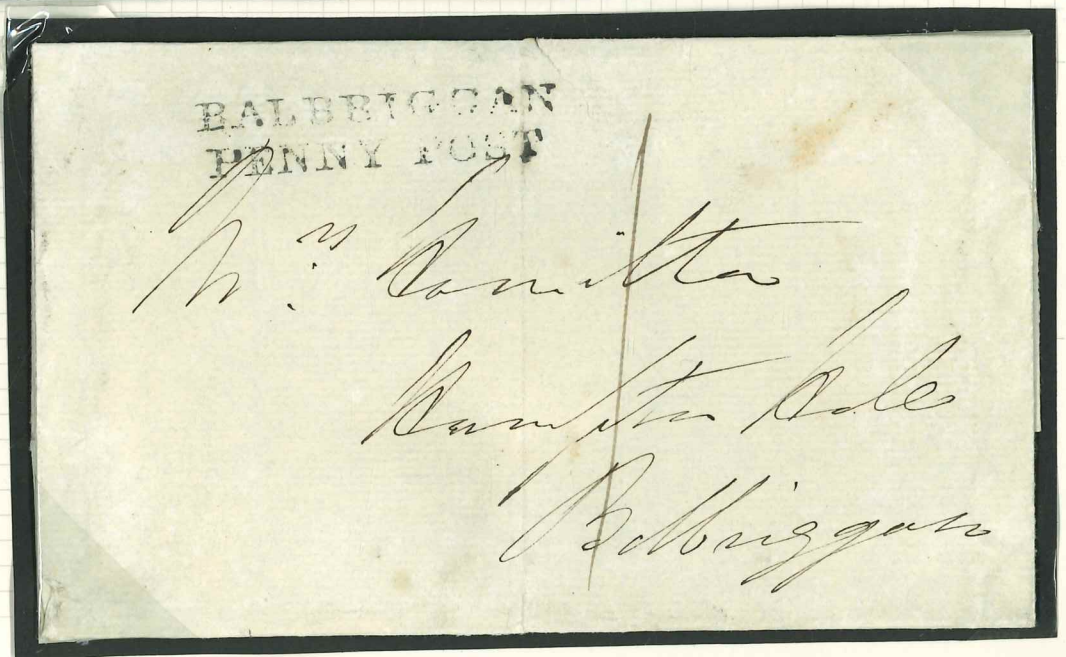 BALBRIGGAN
PENNY POST
1
Mrs. Hamilton
Hampton Hall
Balbriggan